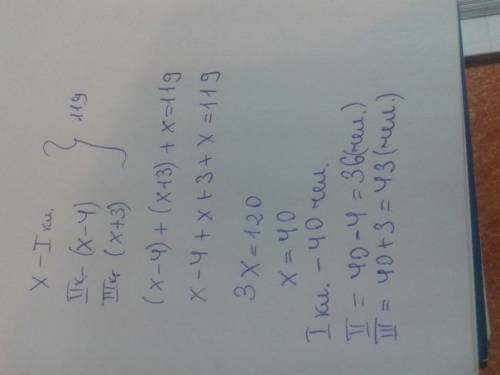 x – I кл.
II к – (x-4)
III к (x+3) } 119
(x-4) + (x+3) + x = 119
x - 4 + x + 3 + x = 119
3x = 120
x = 40
I кл. – 40 чел.
II = 40 - 4 = 36 (чел.)
III = 40 + 3 = 43 (чел.)